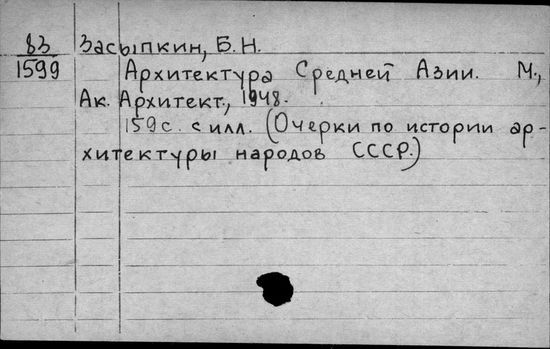 83 Засыпкин, Б.Н.
1599 Архитектура Средней Азии. М.,
Ак. Архитект., 1948.
159 с. с илл. (Очерки по истории ар-
хитектуры народов СССР.)